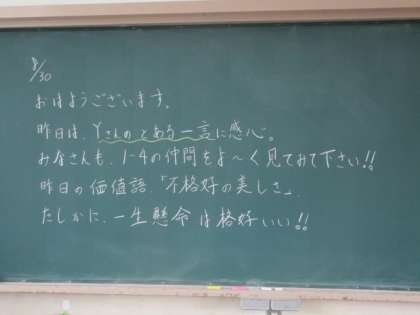 8/30
おはようございます。
昨日は、Yさんのとある一言に感心。
みなさんも、1-4の仲間をよ〜く見てみて下さい!!
昨日の価値語、「不格好の美しさ」。
たしかに、一生懸命は格好いい!!